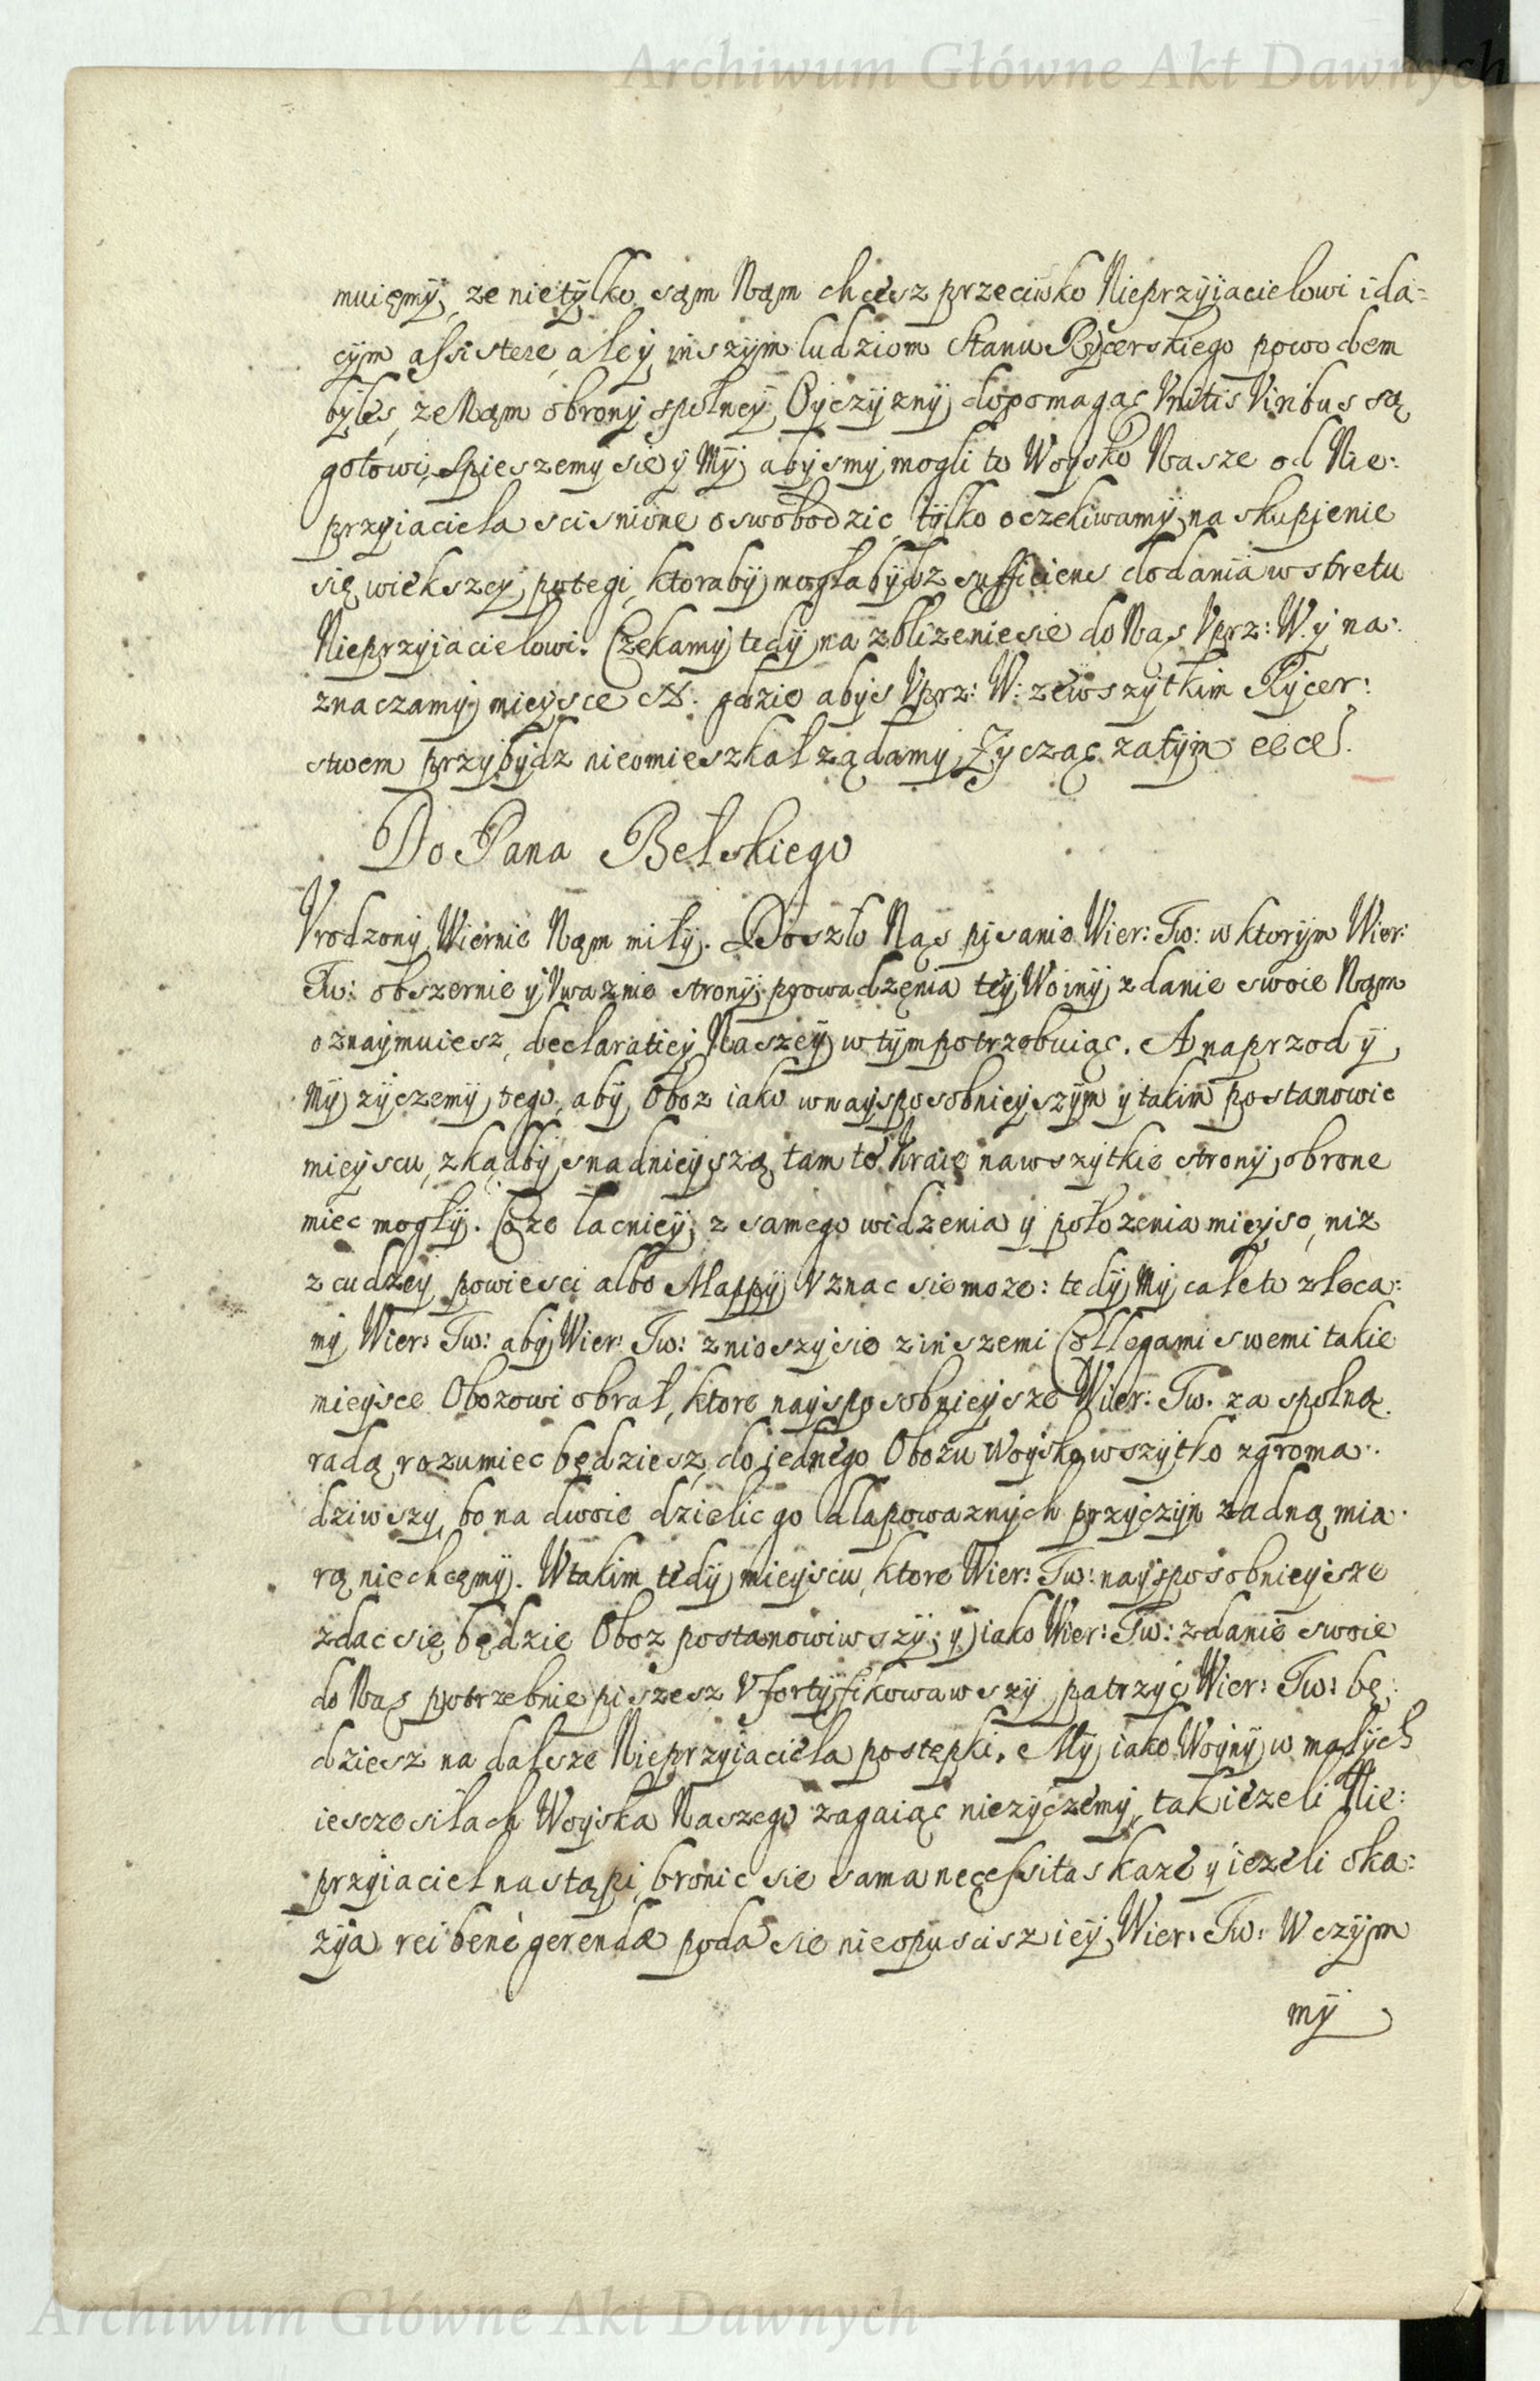 Archiwum Główne Akt Dawnych
muięmy, ze nietylko sąm Nąm chcesz przeciwko Nieprzyiacielowi ida=
cym assistere, ale y inszym ludziom Stanu Rycerskiego powodem
byłes, ze Nąm obrony spolney Oyczyzny dopomagac Vnitis Viribus są
gotowi. Spieszemy sie y My abysmy mogli to Woysko Nasze od Nie:
przyiaciela scisnione oswobodzic, tylko oczekiwamy na skupienie
się wiekszey potegi, ktoraby mogła bydz sufficiens do dania wstretu
Nieprzyiacielowi. Czekamy tedy na zblizenie sie do Nas Vprz: W. y na:
znaczamy mieysce N. gdzie abys Vprz: W: ze wszytkim Rycer:
stwem przybydz nieomieszkał ządamy, Zycząc zatym etc.
Do Pana Bełskiego
Vrodzony Wiernie Nąm miły. Doszło Nąs pisanie Wier: Tw: w ktorym Wier:
Tw: obszernie y Vwaznie strony prowadzęnia tey Woiny zdanie swoie Nąm
oznaymuiesz, declaratiey Naszey w tym potrzebuiąc. A naprzod y
My zyczemy tego, aby Oboz iako w nayposobnieyszym y takim postanowic
mieyscu, zkądby snadnieyszą tam te Kraie na wszytkie strony obrone
miec mogły. Co ze łacniey z samego widzenia y położenia mieysc, niz
z cudzey powiesci albo Mappy Vznac sie moze: tedy My cale to zleca:
my Wier: Tw: aby Wier: Tw: znioszy sie z inszemi Collegami swemi takie
mieysce Obozowi obrał, ktore naysposobnieysze Wier: Tw. za spolną
radą rozumiec będziesz, do iednego Obozu Woysko wszytko zgroma:
dziwszy, bo na dwoie dzielic go dla powaznych przyczyn zadną mia:
rą niechcęmy. W takim tedy mieyscu, ktore Wier: Tw: naysposobnieysze
zdac się będzie Oboz postanowiwszy, y iako Wier: Tw: zdanie swoie
do Nas potrzebnie piszesz Vfortyfikowawszy, patrzyc Wier: Tw: bę:
dziesz na dalsze Nieprzyiaciela postępki. My iako Woyny w małych
iescze siłach Woyska Naszego zagaiąc niezyczemy, tak iezeli Nie:
przyiaciel nastąpi, bronic sie sama necessitas kaze y iezeli oka:
zya rei bene gerendæ poda sie nieopuscisz iey Wier: Tw: W czym
my
Archiwum Główne Akt Dawnych